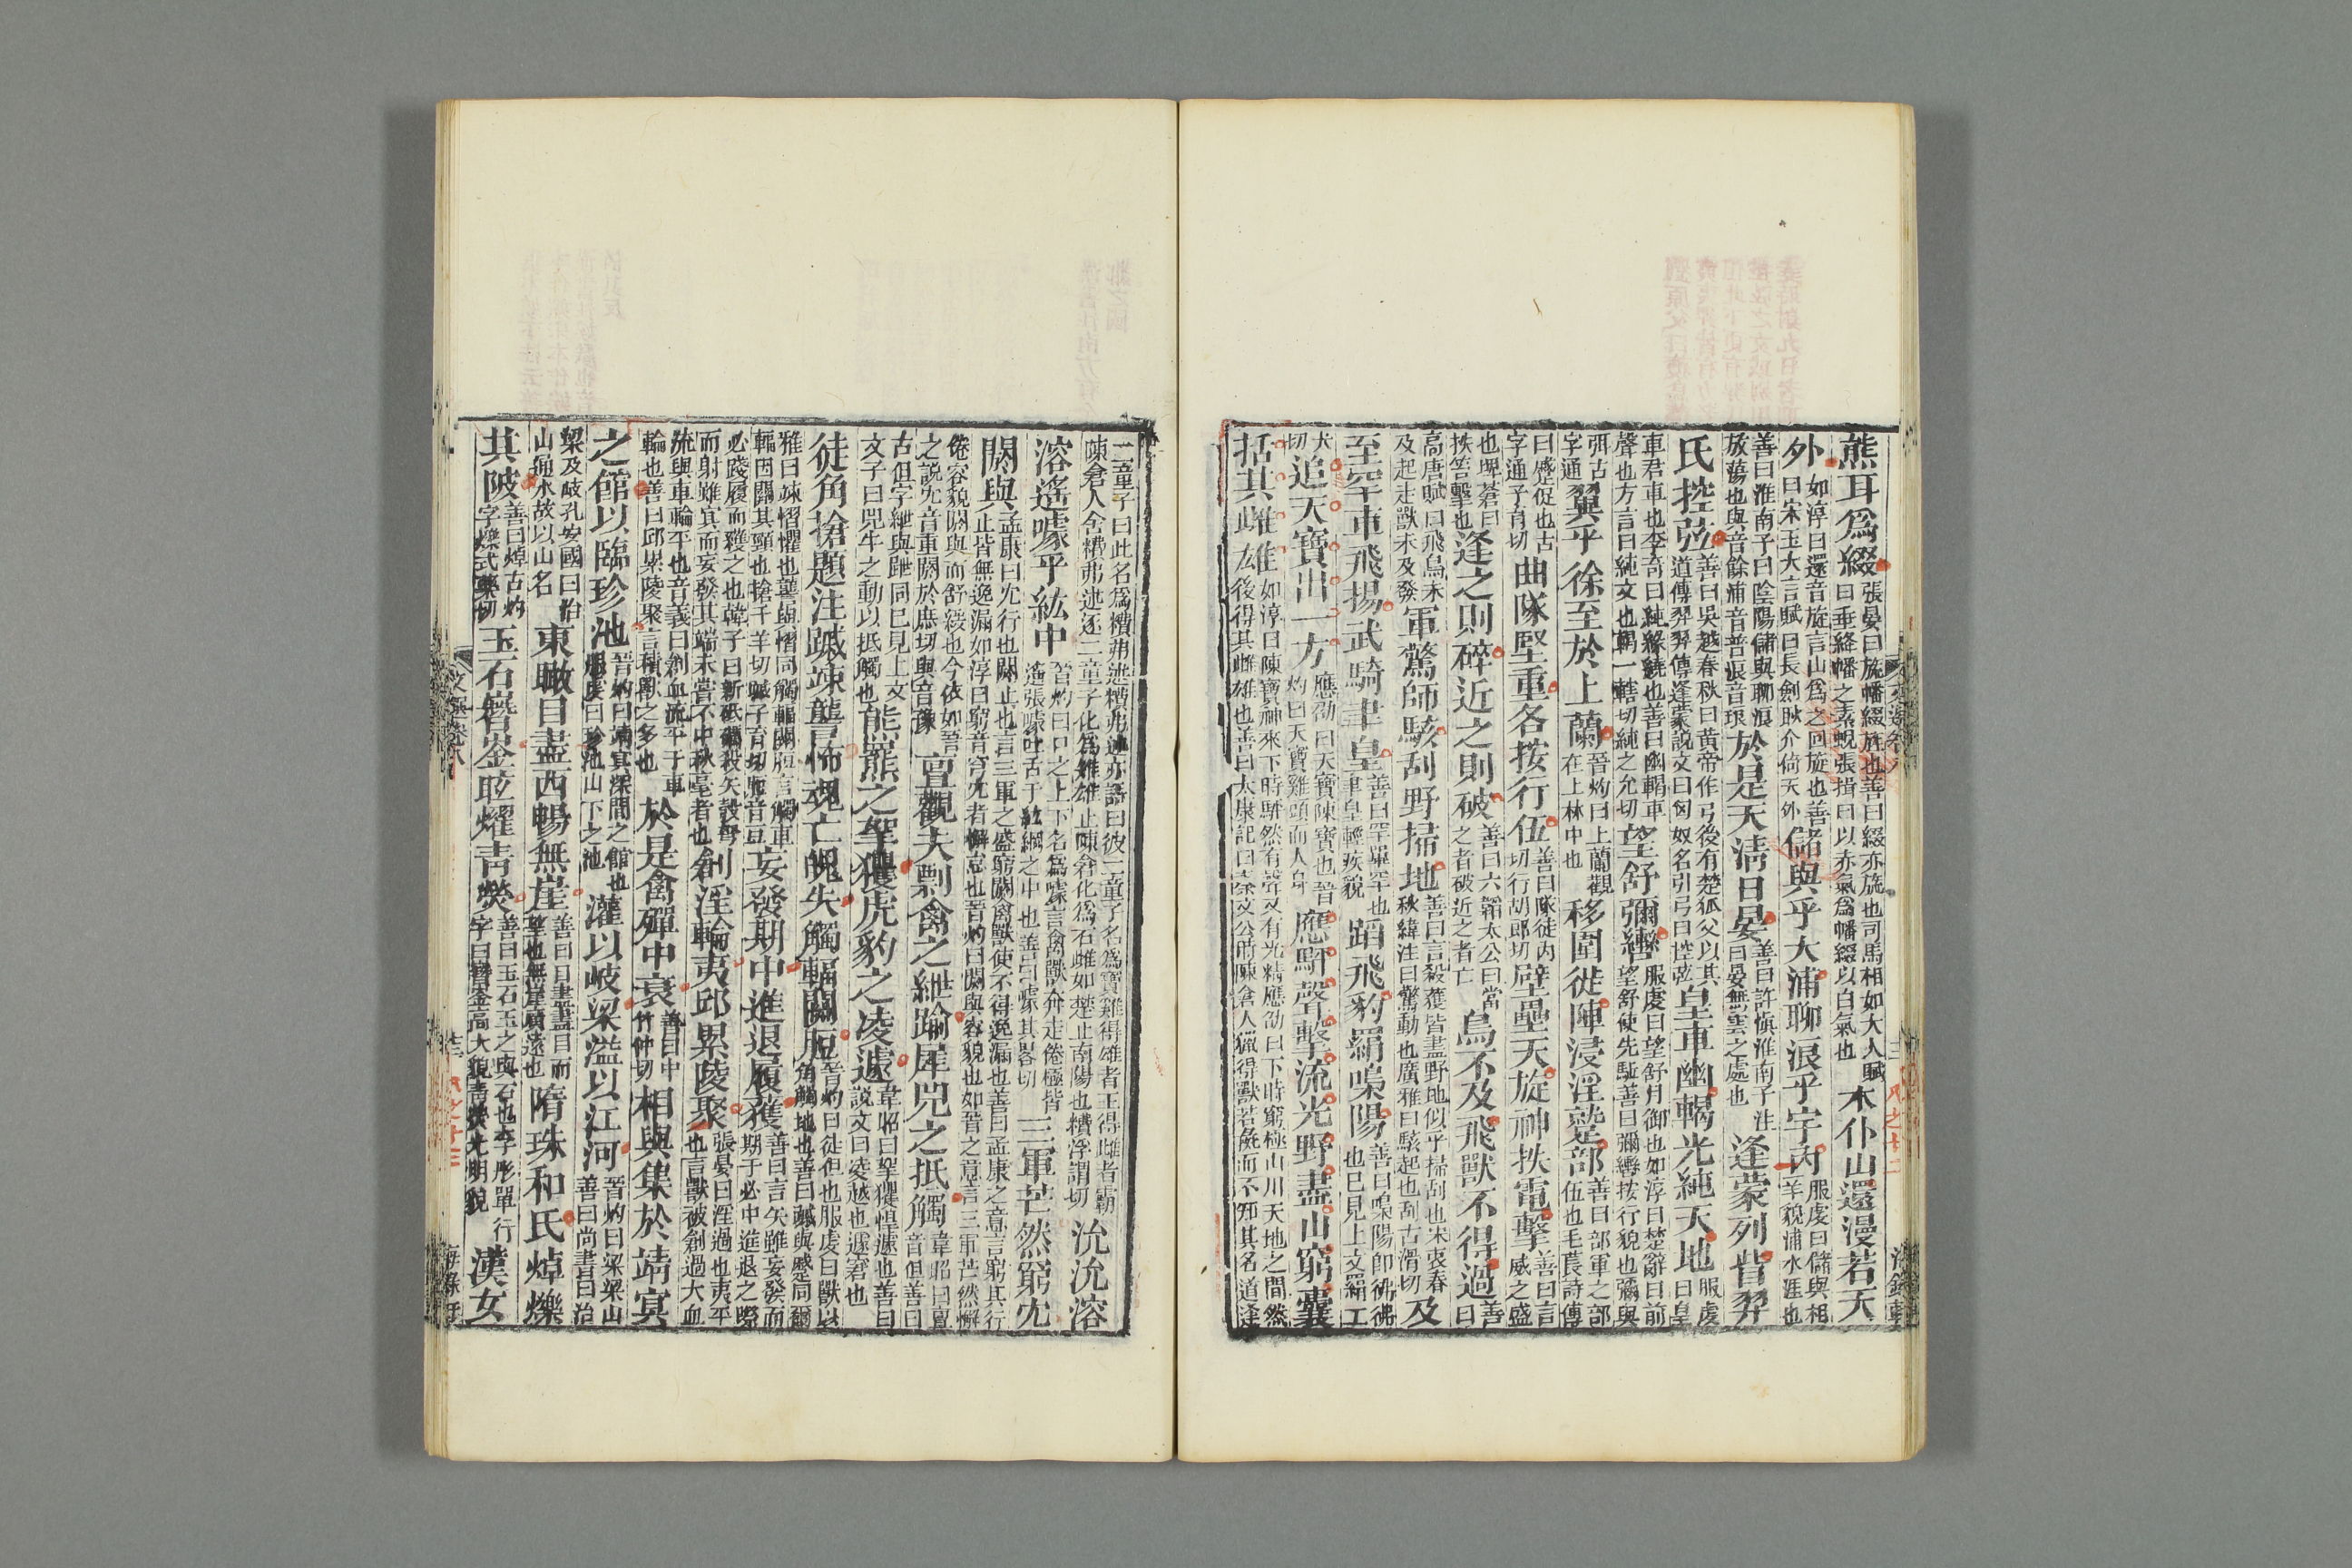 熊耳爲綴張晏曰旄幡綴旌也善曰綴亦旄也司馬相如大人賦曰垂絳幡之素蜺張揖曰以赤氣爲幡綴以白氣也木仆山還漫若天
外如淳曰還音旋言山爲之回旋也善曰宋玉大言賦曰長劍耿介倚天外儲與乎大浦聊浪乎宇內服虔曰儲與相羊貌浦水涯也
善曰淮南子曰陰陽儲與聊浪放蕩也與音餘浦音普浪音琅於是天清日晏善曰許愼淮南子注曰晏無雲之處也逢蒙列眥羿
氏控弦善曰吳越春秋曰黃帝作弓後有楚狐父以其道傳羿羿傳逢蒙說文曰匈奴名引弓曰控弦皇車幽輵光純天地服虔曰皇
車君車也李奇曰純緣繞也善曰幽輵車聲也方言曰純文也輵一轄切純之允切望舒彌轡服虔曰望舒月御也如淳曰楚辭曰前望舒使先駈善曰彌轡按行貌也彌與
弭古字通翼乎徐至於上蘭晉灼曰上蘭觀在上林中也移圍徙陣浸淫蹵部善曰部軍之部伍也毛萇詩傳
曰蹙促也古字通子育切曲隊堅重各按行伍善曰隊徒內切行胡郎切壁壘天旋神抶電擊善曰言威之盛
也埤蒼曰抶笞擊也逢之則碎近之則破善曰六韜太公曰當之者破近之者亡鳥不及飛獸不得過善曰
高唐賦曰飛鳥未及起走獸未及發軍驚師駭刮野掃地善曰言殺獲皆盡野地似乎掃刮也宋衷春秋緯注曰驚動也廣雅曰駭起也刮古滑切及
至罕車飛揚武騎聿皇善曰罕畢罕也聿皇輕疾貌蹈飛豹羂嘄陽善曰嘄陽即彿彿也已見上文羂工
犬切追天寶出一方應劭曰天寶陳寶也晉灼曰天寶雞頭而人身應駍聲擊流光野盡山窮囊
括其雌雄如淳曰陳寶神來下時駍然有聲又有光精應劭曰下時窮極山川天地之間然後得其雌雄也善曰太康記曰秦文公時陳倉人獵得獸若彘而不知其名道逢
二童子曰此名爲䄏弗述䄏弗述亦語曰彼二童子名爲寶雞得雄者王得雌者霸陳倉人舍䄏弗述逐二童子化爲雉雄止陳倉化爲石雌如楚止南陽也䄏浮謂切沇沇溶
溶遙噱乎紘中晉灼曰口之上下名爲噱言禽獸奔走倦極皆遙張噱吐舌于紘網之中也善曰噱其畧切三軍芒然窮冘
閼與孟康曰冘行也閼止也言三軍之盛窮閼禽獸使不得逸漏也善曰孟康之意言窮其行止皆無逸漏如淳曰窮音穹冘者懈怠也晉灼曰閼與容貌也如晉之意言三軍芒然懈
倦容貌閼與而舒緩也今依如晉之說冘音重閼於庶切與音豫亶觀夫剽禽之紲踰犀兕之抵觸韋昭曰亶音但善曰
古但字紲與跇同已見上文文子曰兕牛之動以抵觸也熊羆之挐玃虎豹之凌遽韋昭曰挐玃惶遽也善曰說文曰凌越也遽窘也
徒角搶題注蹴竦讋怖魂亡魄失觸輻關脰晉灼曰徒但也服虔曰獸以角觸地也善曰蹴與蹙同爾
雅曰竦慴懼也讋與慴同觸輻關脰言觸車輻因關其頸也搶千羊切蹴子育切脰音豆妄發期中進退履獲善曰言矢雖妄發而期于必中進退之際
必踐履而獲之也韓子曰新砥礪殺矢彀弩而射雖冥而妄發其端未嘗不中秋毫者也創淫輪夷邱累陵聚張晏曰淫過也夷平也言獸被創過大血
流與車輪平也音義曰創血流平于車輪也善曰邱累陵聚言積獸之多也於是禽殫中衰善曰中竹仲切相與集於靖冥
之館以臨珍池晉灼曰靖冥深閒之館也服虔曰珍池山下之池灌以岐梁溢以江河晉灼曰梁梁山善曰尚書曰治
梁及岐孔安國曰治山通水故以山名東瞰目盡西暢無崖善曰目盡盡目而望也無崖廣遠也隋珠和氏焯爍
其陂善曰焯古灼字爍式藥切玉石嶜崟眩燿青熒善曰玉石玉之與石也李彤單行字曰嶜崟高大貌青熒光明貌漢女